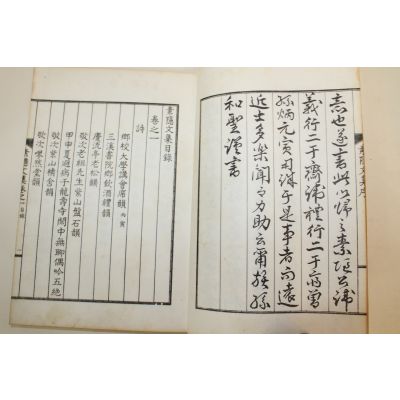 志也遂書此以歸之素隱公諱
義行二于齋諱禮行二于齋曾
孫炳元實司諸于是事者而遠
近士多樂聞而力助云爾族孫
和聖謹書
素隱文集目錄
卷之一
詩
鄉校大學講會席韻
三溪書院鄉飲酒禮韻
慶流亭老松韻
敬次老祖先生紫山盤石韻
甲申夏避病于龍壽寺閒中無聊偶吟五絶
敬次紫山構舍韻
敬次
素隱文集卷之一目錄